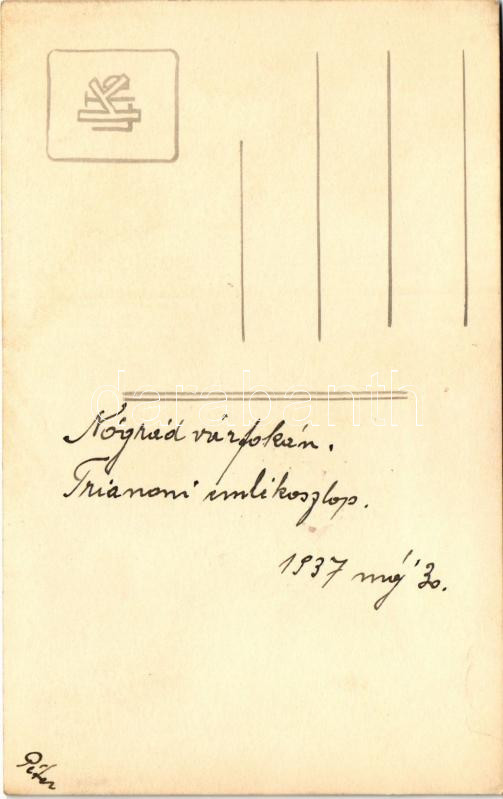 darabanth
Nógrád várfokán.
Trianoni emlékoszlop.
1937 máj 30.
Péter